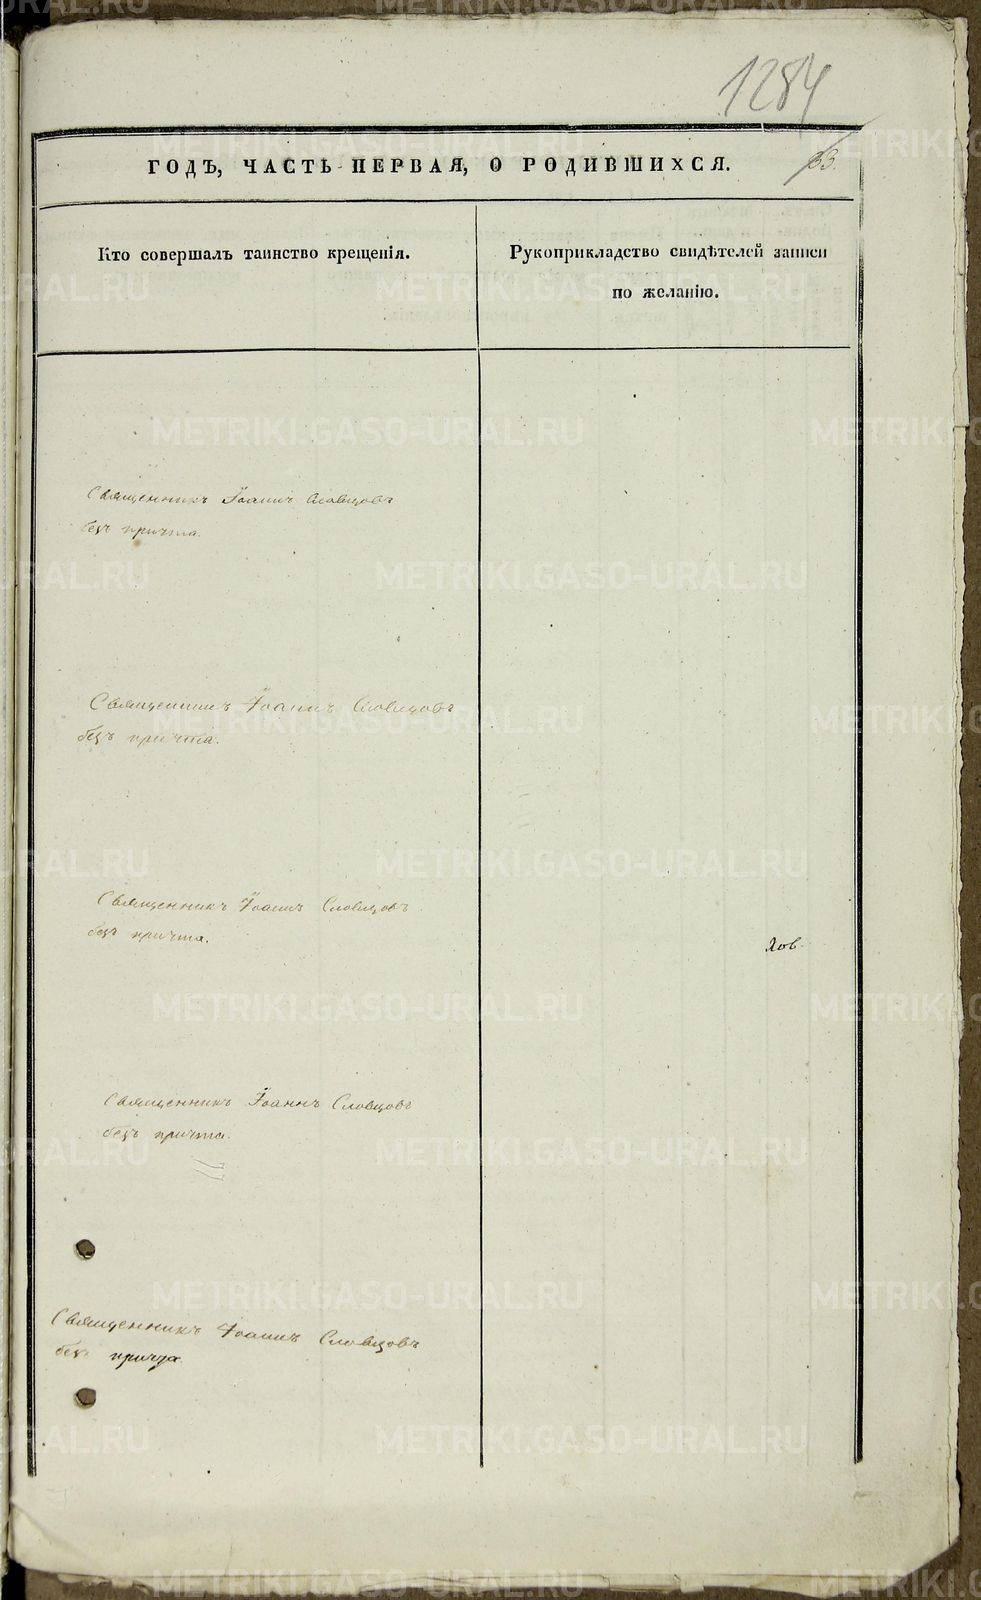 1284
ГОДЪ, ЧАСТЬ ПЕРВАЯ, О РОДИВШИХСЯ.
33.
Кто совершалъ таинство крещенія.
Рукоприкладство свидѣтелей записи
по желанію.
Священникъ Іоаннъ Словцовъ
безъ причта.
Священникъ Іоаннъ Словцовъ
безъ причта.
Священникъ Іоаннъ Словцовъ
безъ причта.
Священникъ Іоаннъ Словцовъ
безъ причта.
Священникъ Іоаннъ Словцовъ
безъ причта
METRIKI.GASO-URAL.RU